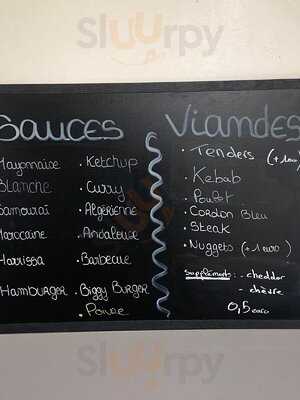 Sluurpy
Sauces
Viandes
Mayonnaise
Blanche
Samouraï
Marocaine
Harrissa
Hamburger
· Ketchup
· Curry
· Algerienne
· Andalouse
· Barbecue
· Biggy Burger
· Poivre
· Tenders (+1euro)
· Kebab
· Poulet
· Cordon Bleu
· Steak
· Nuggets (+1euro)
Suppléments: - cheddar
- chèvre
0,5 euro
Sluurpy